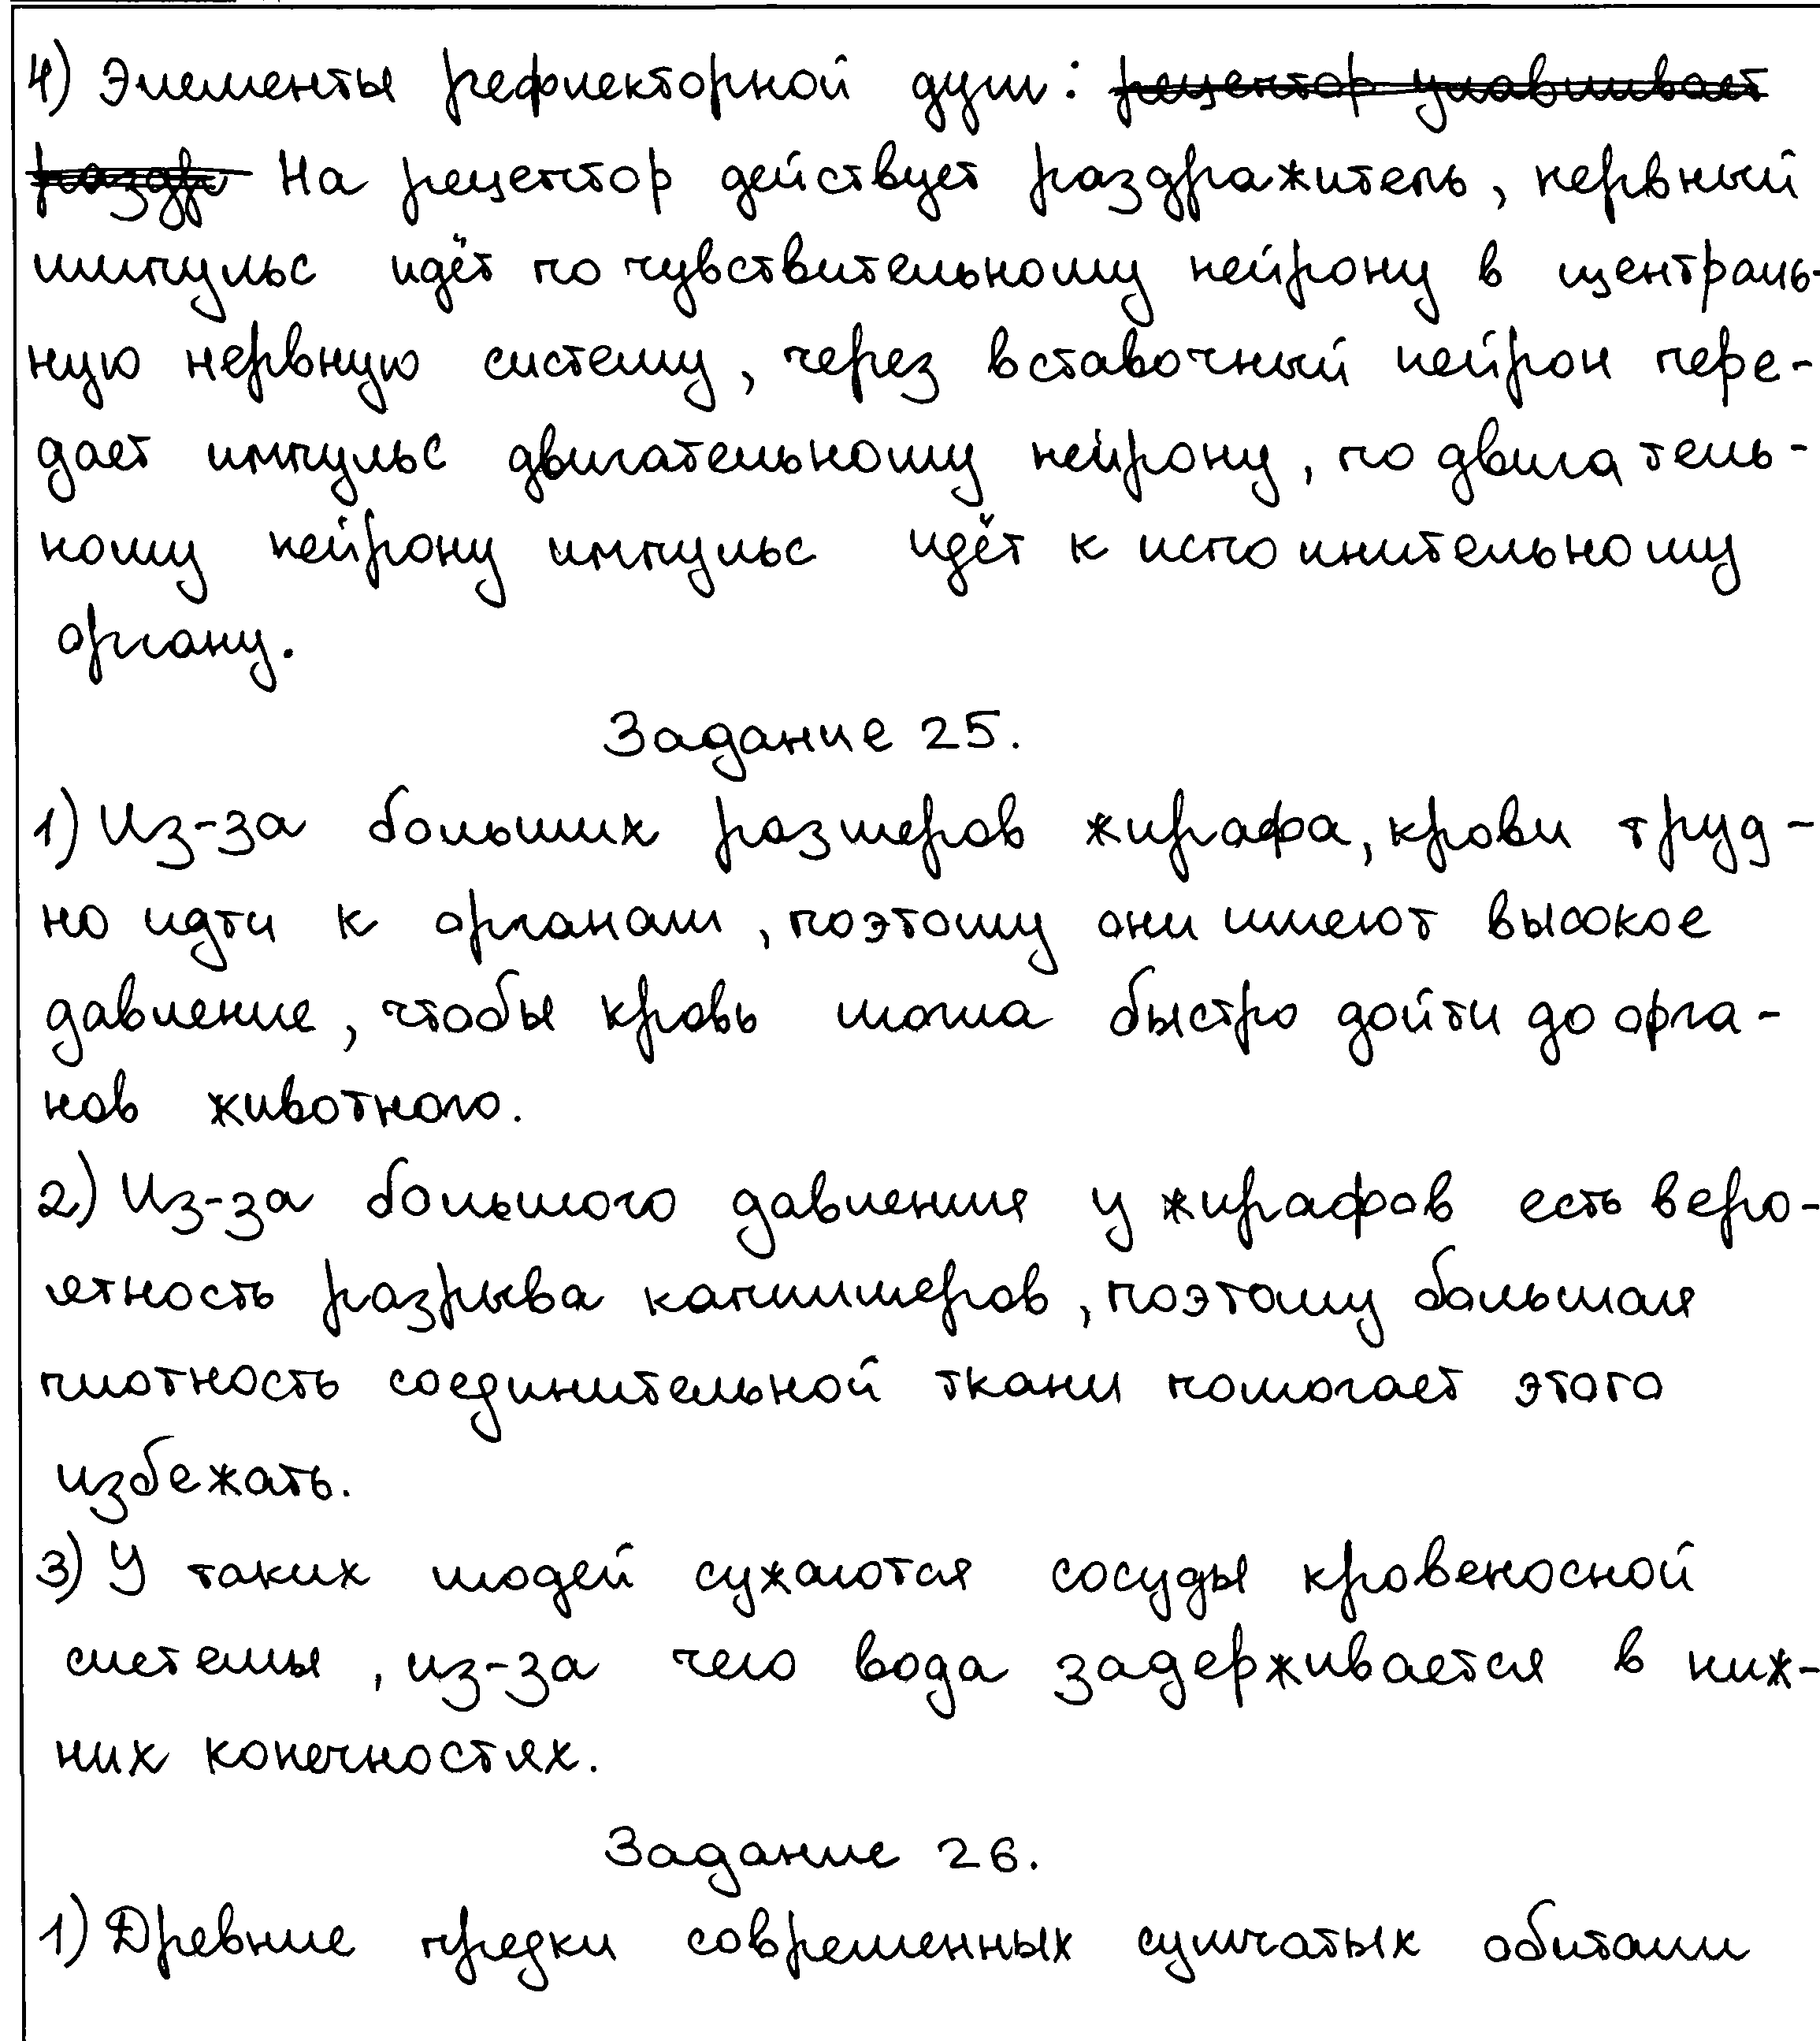 4) Элементы рефлекторной дуги: рецептор улавливает
раздр На рецептор действует раздражитель, нервный
импульс идёт по чувствительному нейрону в централь-
ную нервную систему, через вставочный нейрон пере-
дает импульс двигательному нейрону, по двигатель-
ному нейрону импульс идёт к исполнительному
органу.
Задание 25.
1) Из-за больших размеров жирафа, крови труд-
но идти к органам, поэтому они имеют высокое
давление, чтобы кровь могла быстро дойти до орга-
нов животного.
2) Из-за большого давления у жирафов есть веро-
ятность разрыва капилляров, поэтому большая
плотность соединительной ткани помогает этого
избежать.
3) У таких людей сужаются сосуды кровеносной
системы, из-за чего вода задерживается в ниж-
них конечностях.
Задание 26.
1) Древние предки современных сумчатых обитали